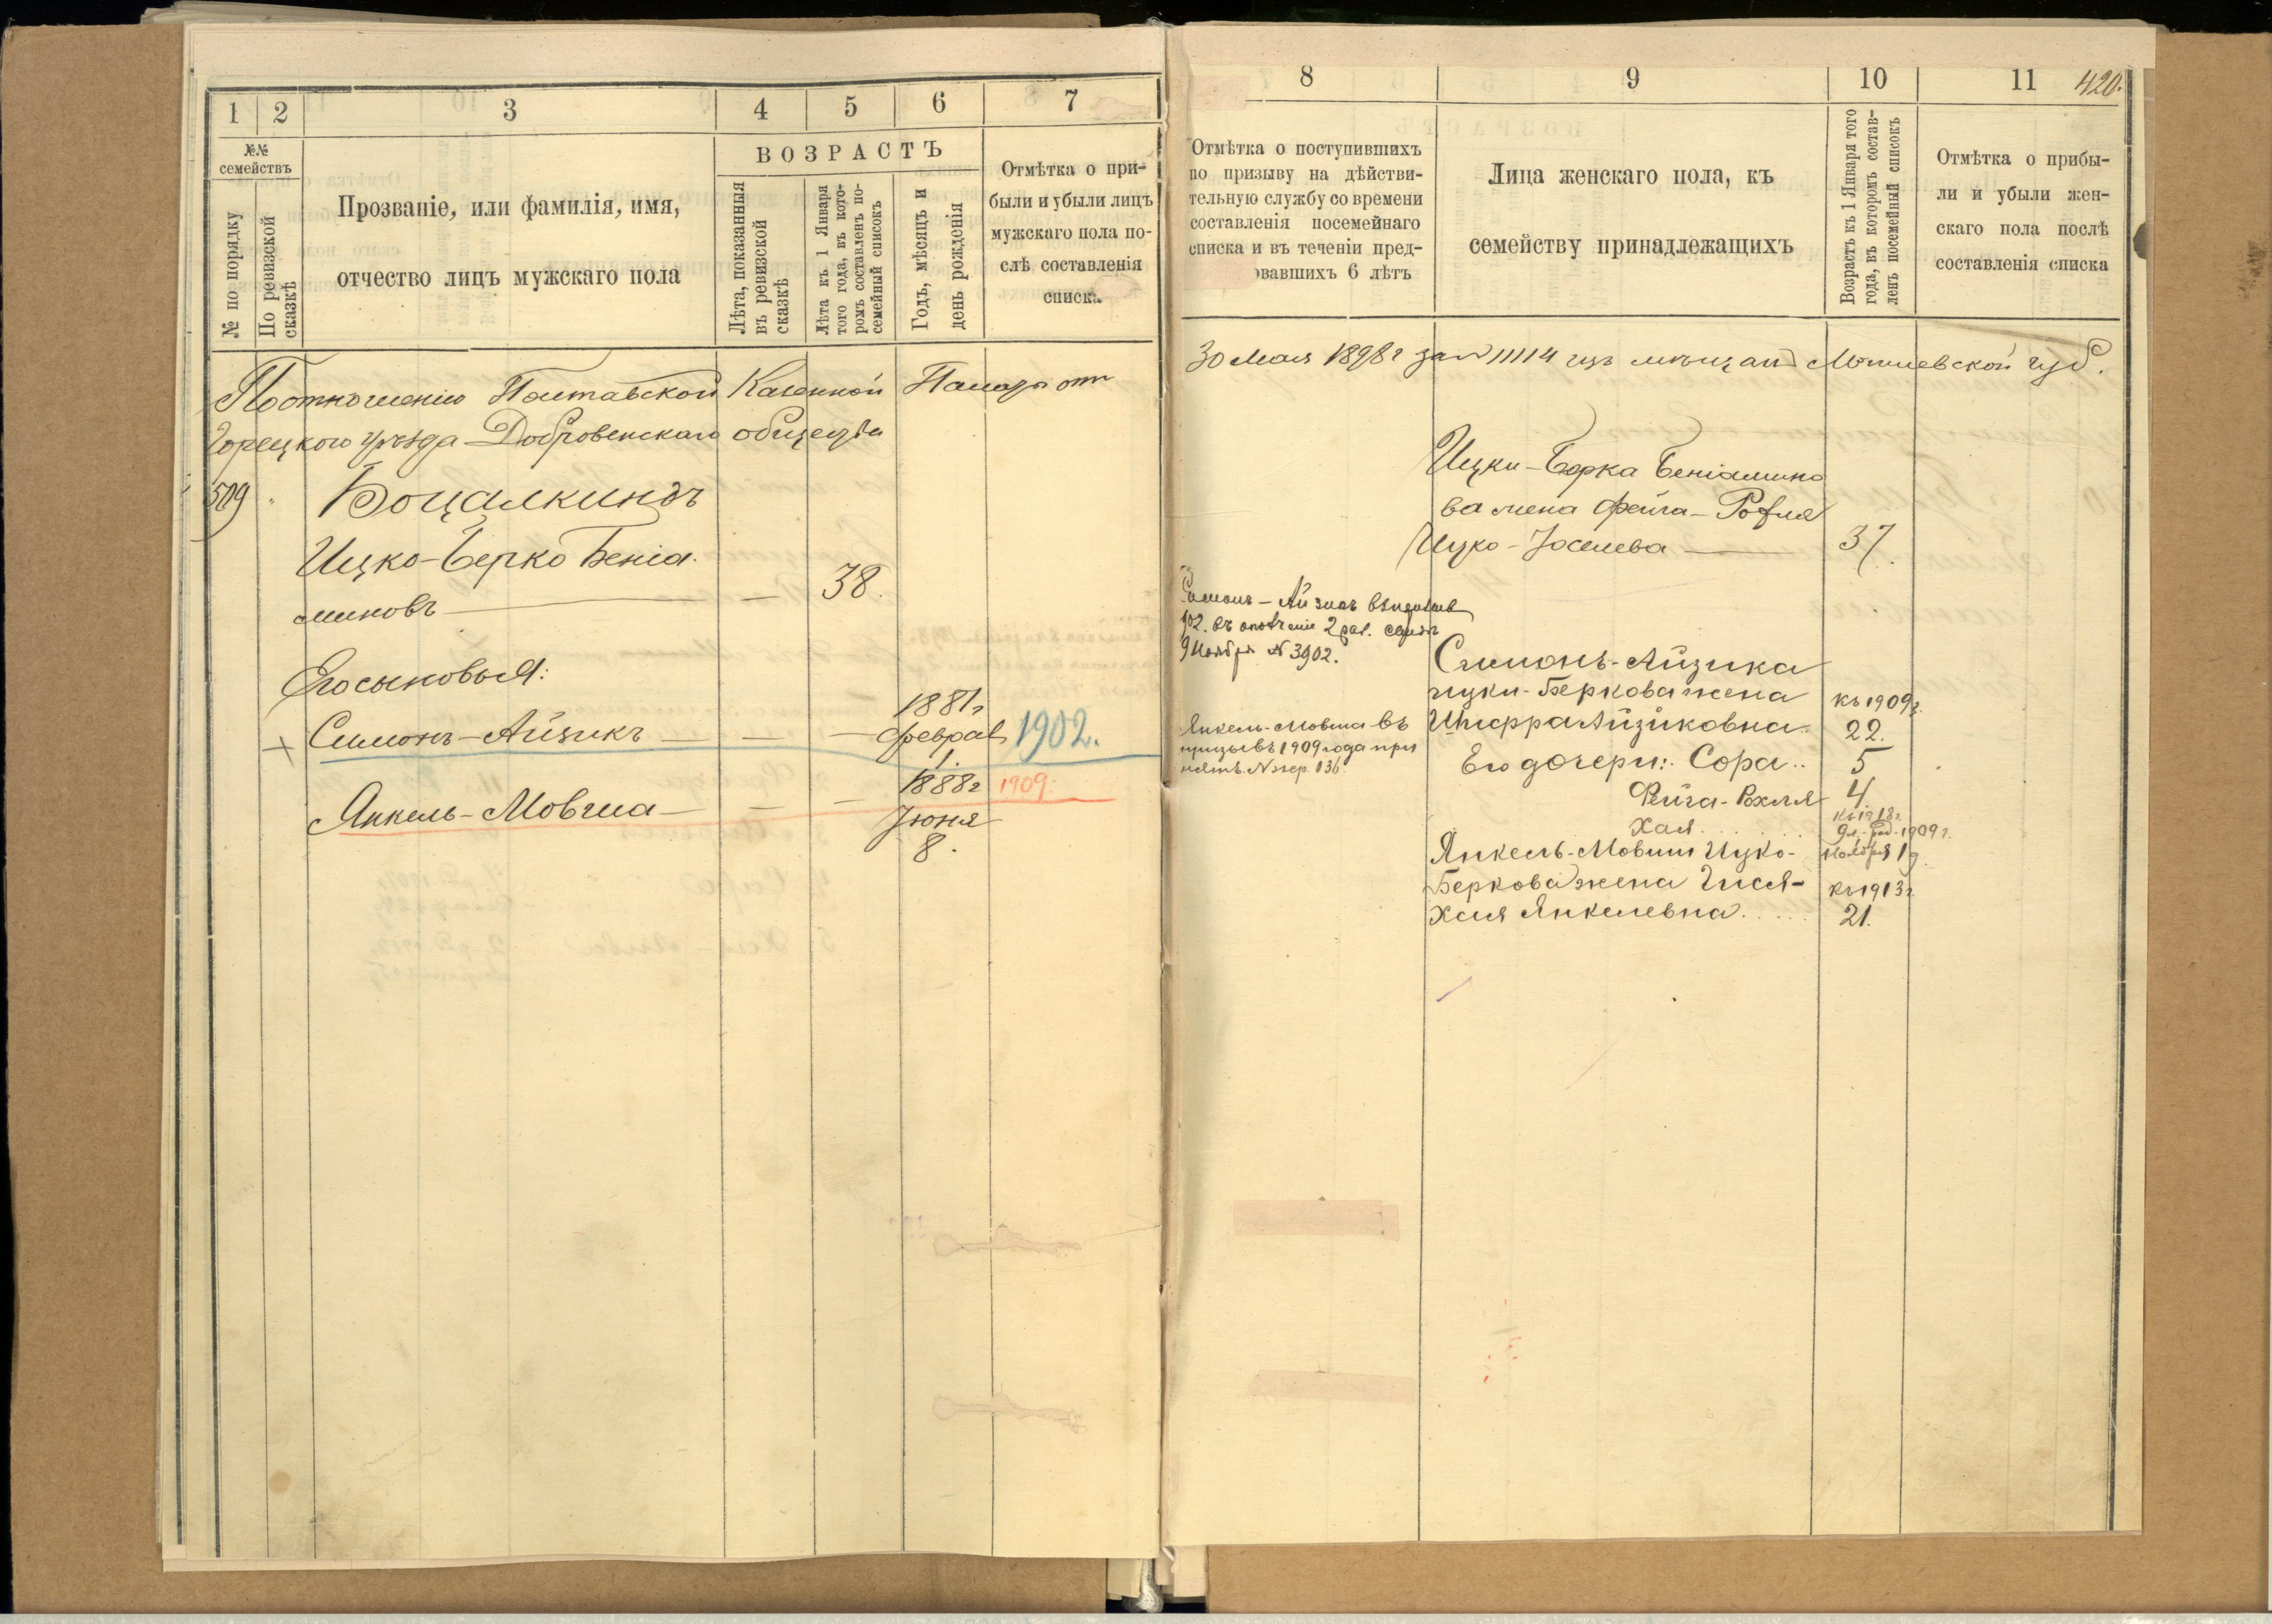 1 2 3 4 5 6 7
№№ семействъ
№ по порядку
По ревизской сказкѣ
Прозваніе, или фамилія, имя,
отчество лицъ мужскаго пола
ВОЗРАСТЪ
Лѣта, показанныя
въ ревизской
сказкѣ
Лѣта къ 1 Января
того года, въ кото-
ромъ составленъ по-
семейный списокъ
Годъ, мѣсяцъ и
день рожденія
Отмѣтка о при-
были и убыли лицъ
мужскаго пола по-
слѣ составленія
списка
По отношенію Полтавской Казенной Палаты отъ
Горецкого уѣзда Добровенскаго общества
509 „ Боцалкиндъ
Ицко-Берко Беніа-
миновъ — — 38.
Его сыновья:
Симонъ-Айзикъ — — — 1881г
Феврал 1902.
1.
Янкель-Мовша — — — 1888г 1909.
Іюня
8.
8 9 10 11 420.
Отмѣтка о поступившихъ
по призыву на дѣйстви-
тельную службу со времени
составленія посемейнаго
списка и въ теченіи пред-
овавшихъ 6 лѣтъ
Лица женскаго пола, къ
семейству принадлежащихъ
Возрастъ къ 1 Января того
года, въ которомъ состав-
ленъ посемейный списокъ
Отмѣтка о прибы-
ли и убыли жен-
скаго пола послѣ
составленія списка
30 Мая 1898г за № 11114 изъ мѣщанъ Могилевской губ.
Ицки-Берка Беніамино
ва жена Фейга-Рохля
Ицко-Іоселева — 37.
Симонъ-Айзикъ
902. въ ополченіе 2 раз.
9 Ноября № 3902.
Симонъ-Айзика
Ицки-Беркова жена къ 1909г.
Шифра Айзиковна. 22.
Янкель-Мовша въ
призывъ 1909 года при
нятъ. № жер. 136.
Его дочери: Сора.. 5
Фейга-Рохля 4
къ 1918г.
Хая..... 9л.-род-1909г.
Ноября 19.
Янкель-Мовши Ицко-
Беркова жена Гися- къ 1913г
Хая Янкелевна..... 21.